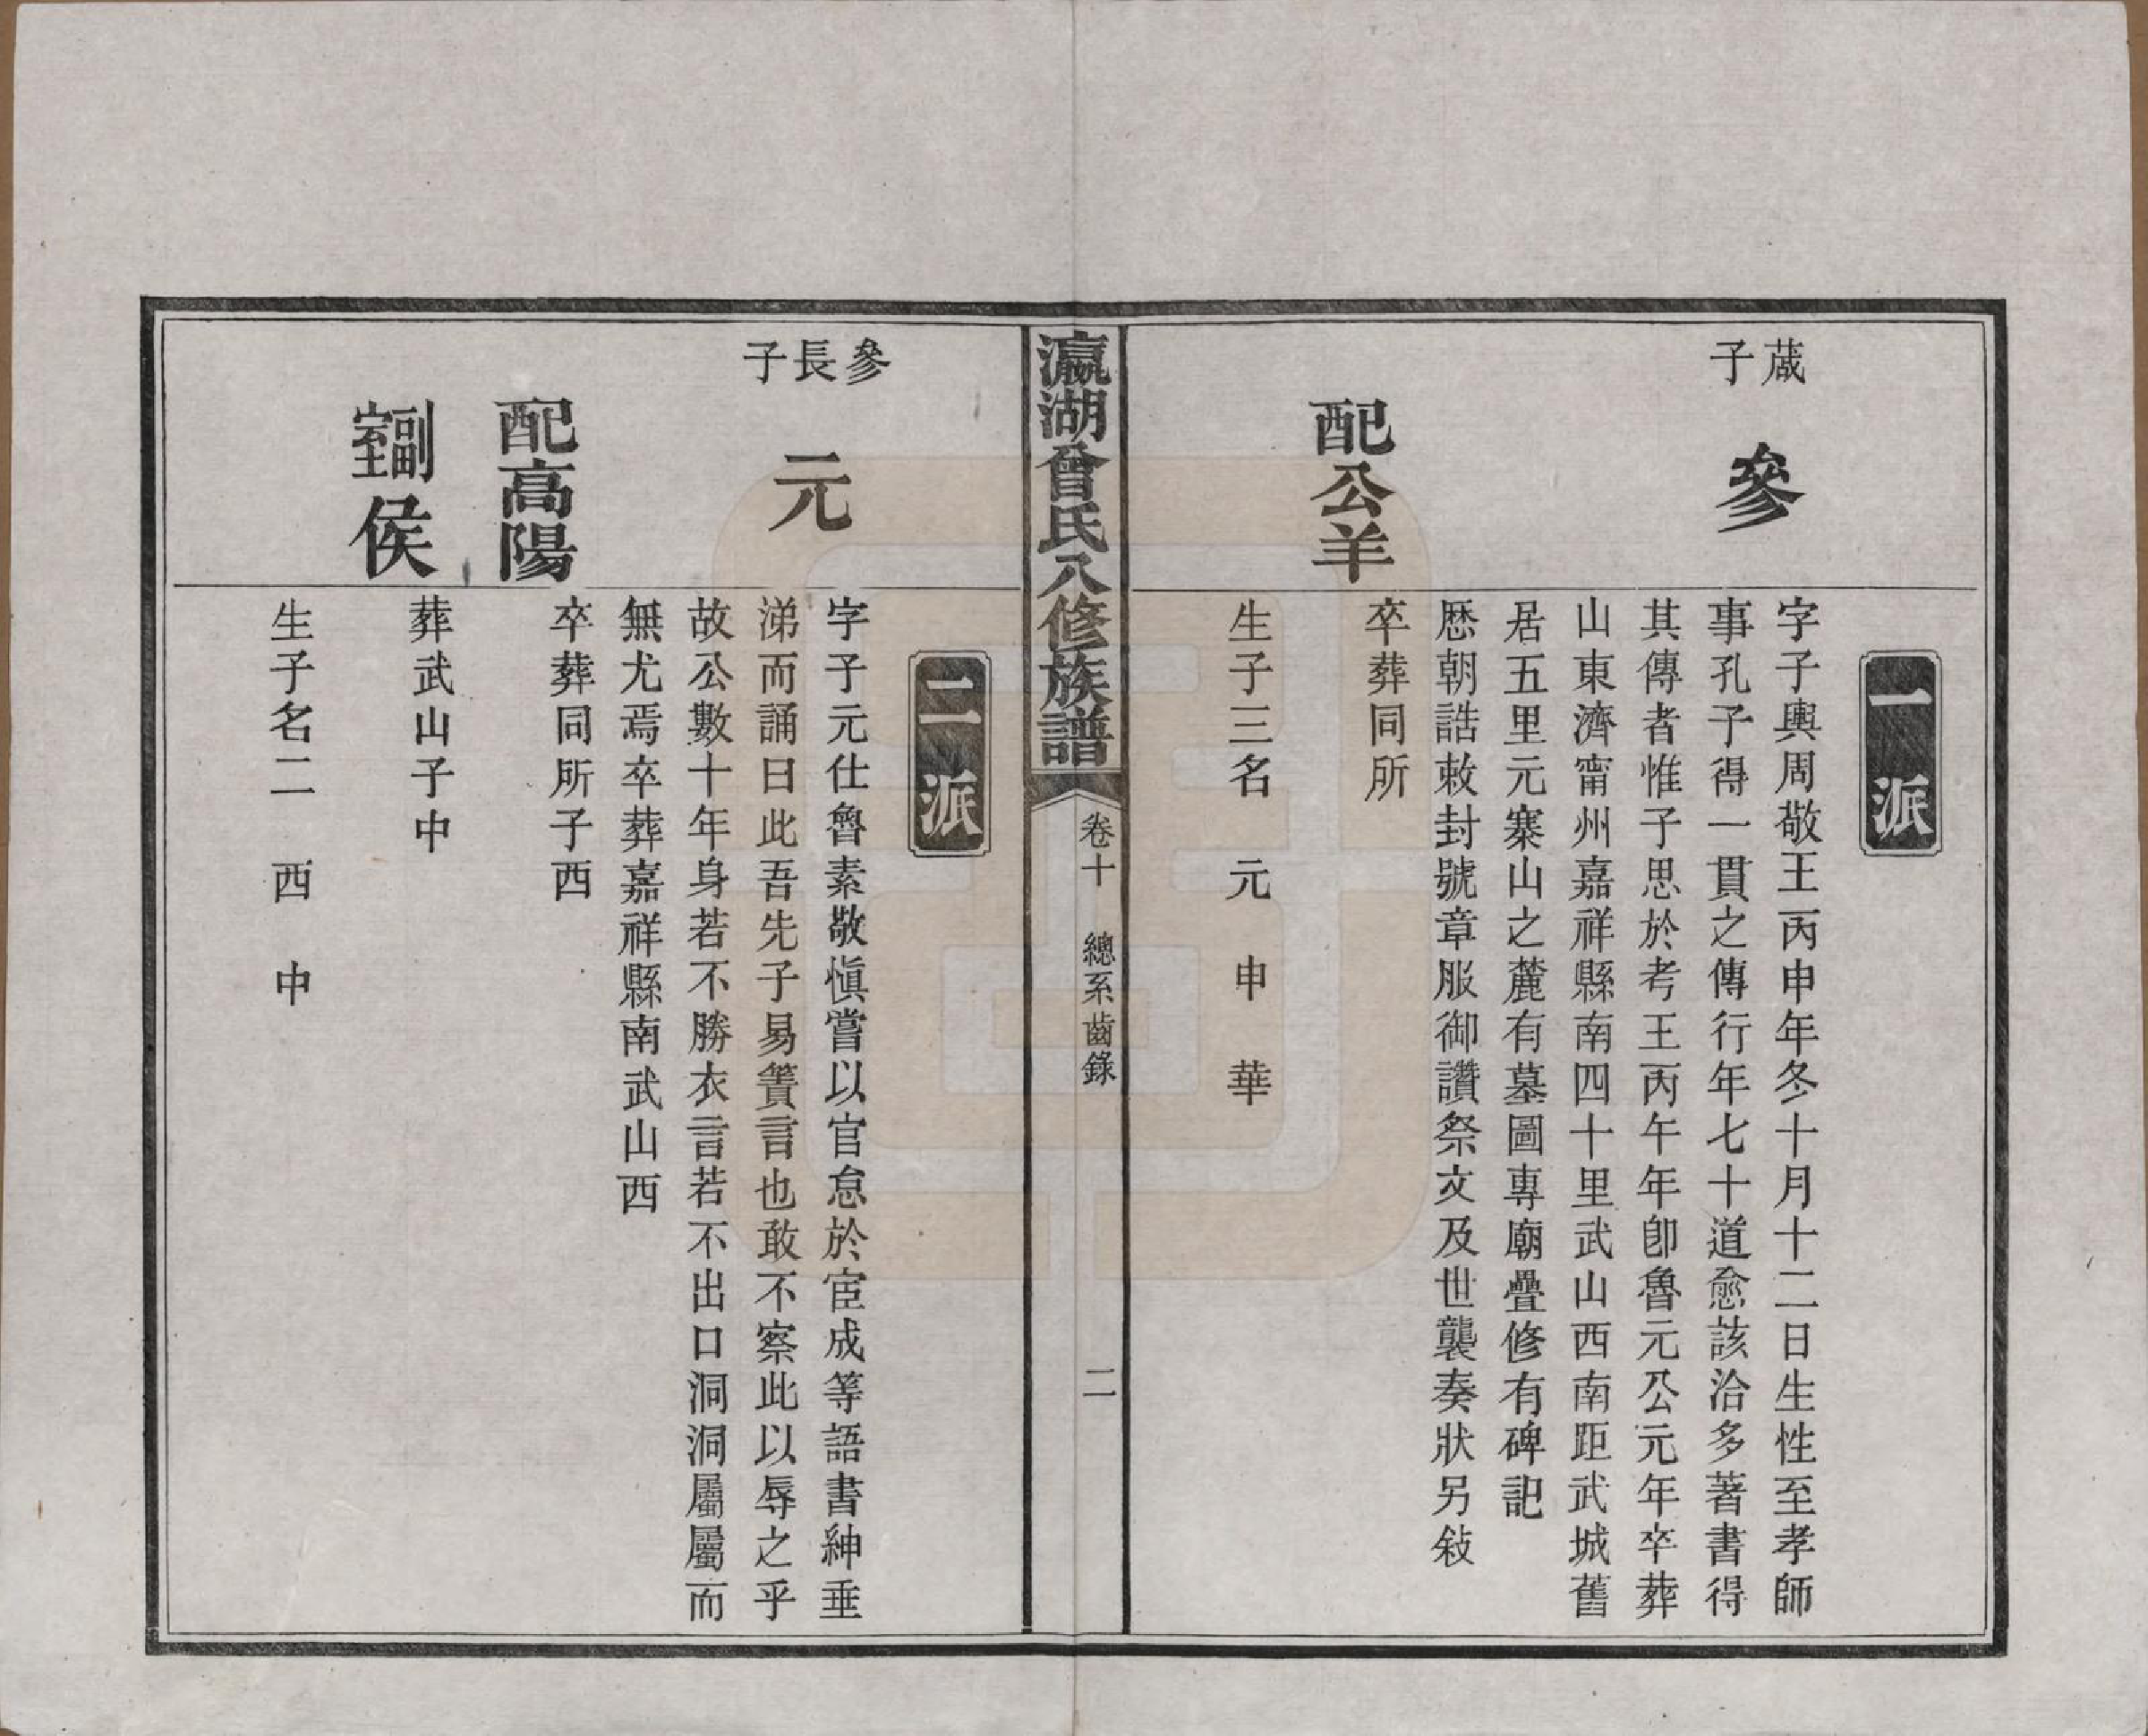 一派
蒇子
參
字子輿周敬王丙申年冬十月十二日生性至孝師
事孔子得一貫之傳行年七十道愈該洽多著書得
其傳者惟子思於考王丙午年卽魯元公元年卒葬
山東濟甯州嘉祥縣南四十里武山西南距武城舊
居五里元寨山之麓有墓圖專廟疊修有碑記
歷朝誥敕封號章服御讚祭文及世襲奏狀另敍
配公羊
卒葬同所
生子三名 元 申 華
瀛湖曾氏八修族譜
卷十 總系齒錄
二
二派
參長子
元
字子元仕魯素敬愼嘗以官怠於宦成等語書紳垂
涕而誦曰此吾先子易簀言也敢不察此以辱之乎
故公數十年身若不勝衣言若不出口洞洞屬屬而
無尤焉卒葬嘉祥縣南武山西
配高陽
卒葬同所子西
副室侯
葬武山子中
生子名二 西 中